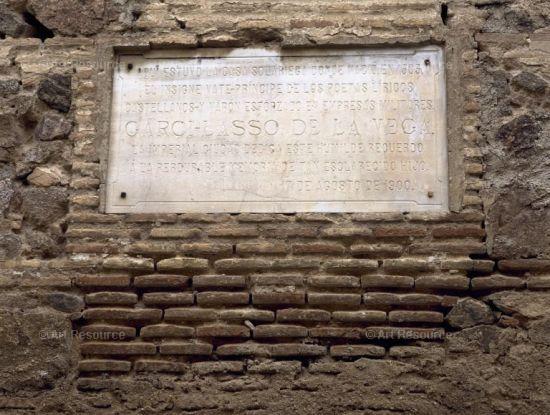 AQUI ESTUVO LA CASA SOLARIEGA DONDE NACIO EN 1503,
EL INSIGNE VATE PRINCIPE DE LOS POETAS LIRICOS
CASTELLANOS Y VARON ESFORZADO EN EMPRESAS MILITARES,
GARCI-LASSO DE LA VEGA.
LA IMPERIAL CIUDAD DEDICA ESTE HUMILDE RECUERDO
A LA PERDURABLE MEMORIA DE TAN ESCLARECIDO HIJO.
DE AGOSTO DE 1900.
© Art Resource
© Art Resource
© Art Resource